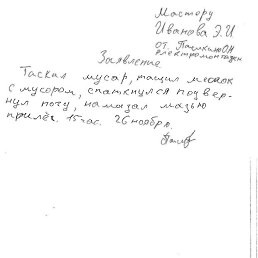 Мастеру
Иванова Э.И
от Пашкано О.Н
электромонтажн
Заявление
Таскал мусар, тащил мешок
с мусором, споткнулся подвер-
нул ногу, намазал мазью
прилёг. 15 час. 26 ноября.